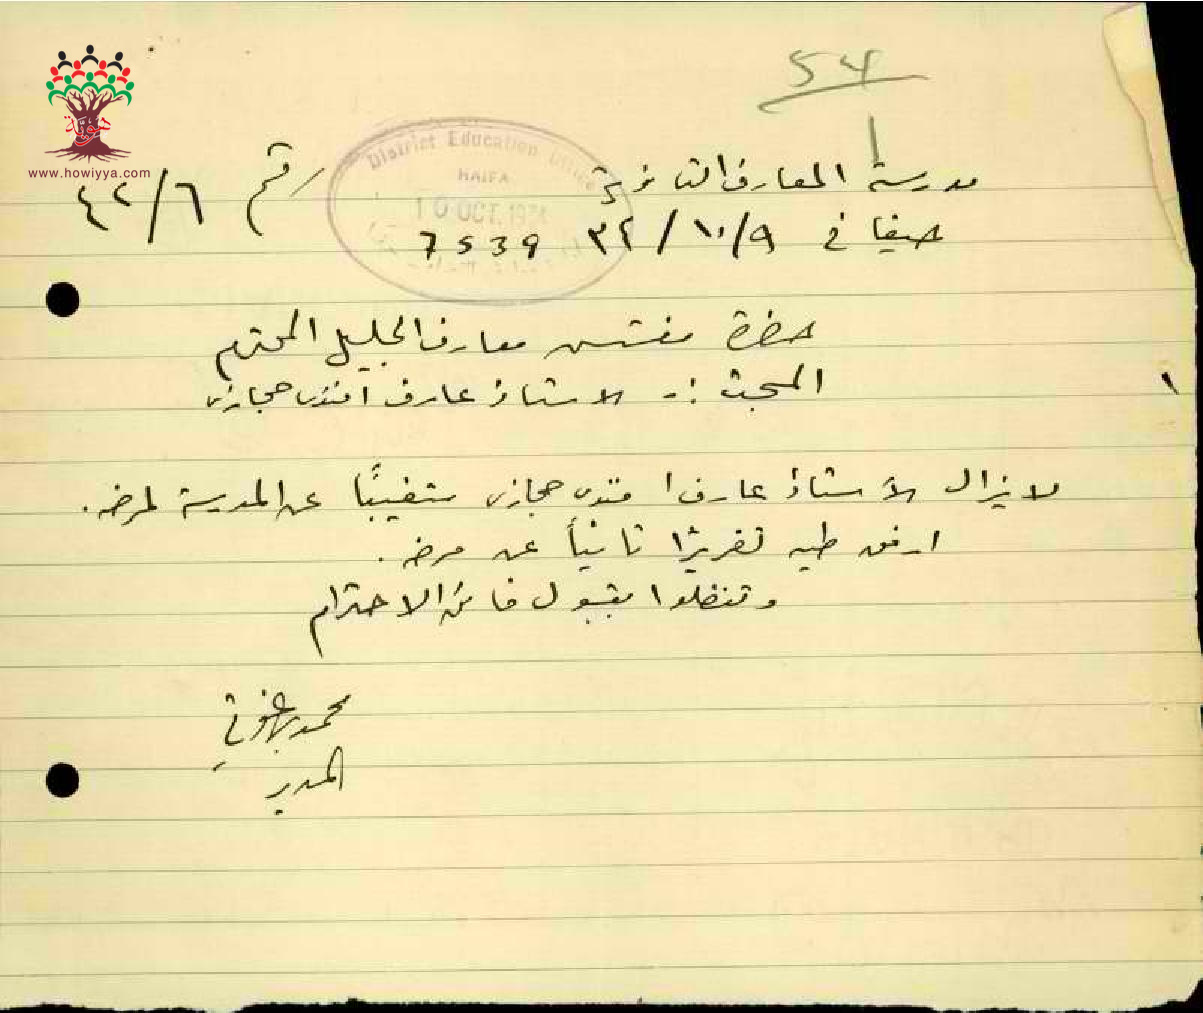 54
هوية
www.howiyya.com
District Education Office
HAIFA
10 OCT. 193
مدرسة المعارف الثانوية رقم ٤٢/٦
حيفا في ٣٢/١٠/٩ 7539
حضرة مفتش معارف الجليل المحترم
المبحث :- الاستاذ عارف افندي حجازي
١
لا يزال الأستاذ عارف افندي حجازي متغيبًا عن المدرسة لمرضه.
ارفق طيه تقريرًا ثانيًا عن مرضه.
وتفضلوا بقبول فائق الاحترام
محمد
المدير